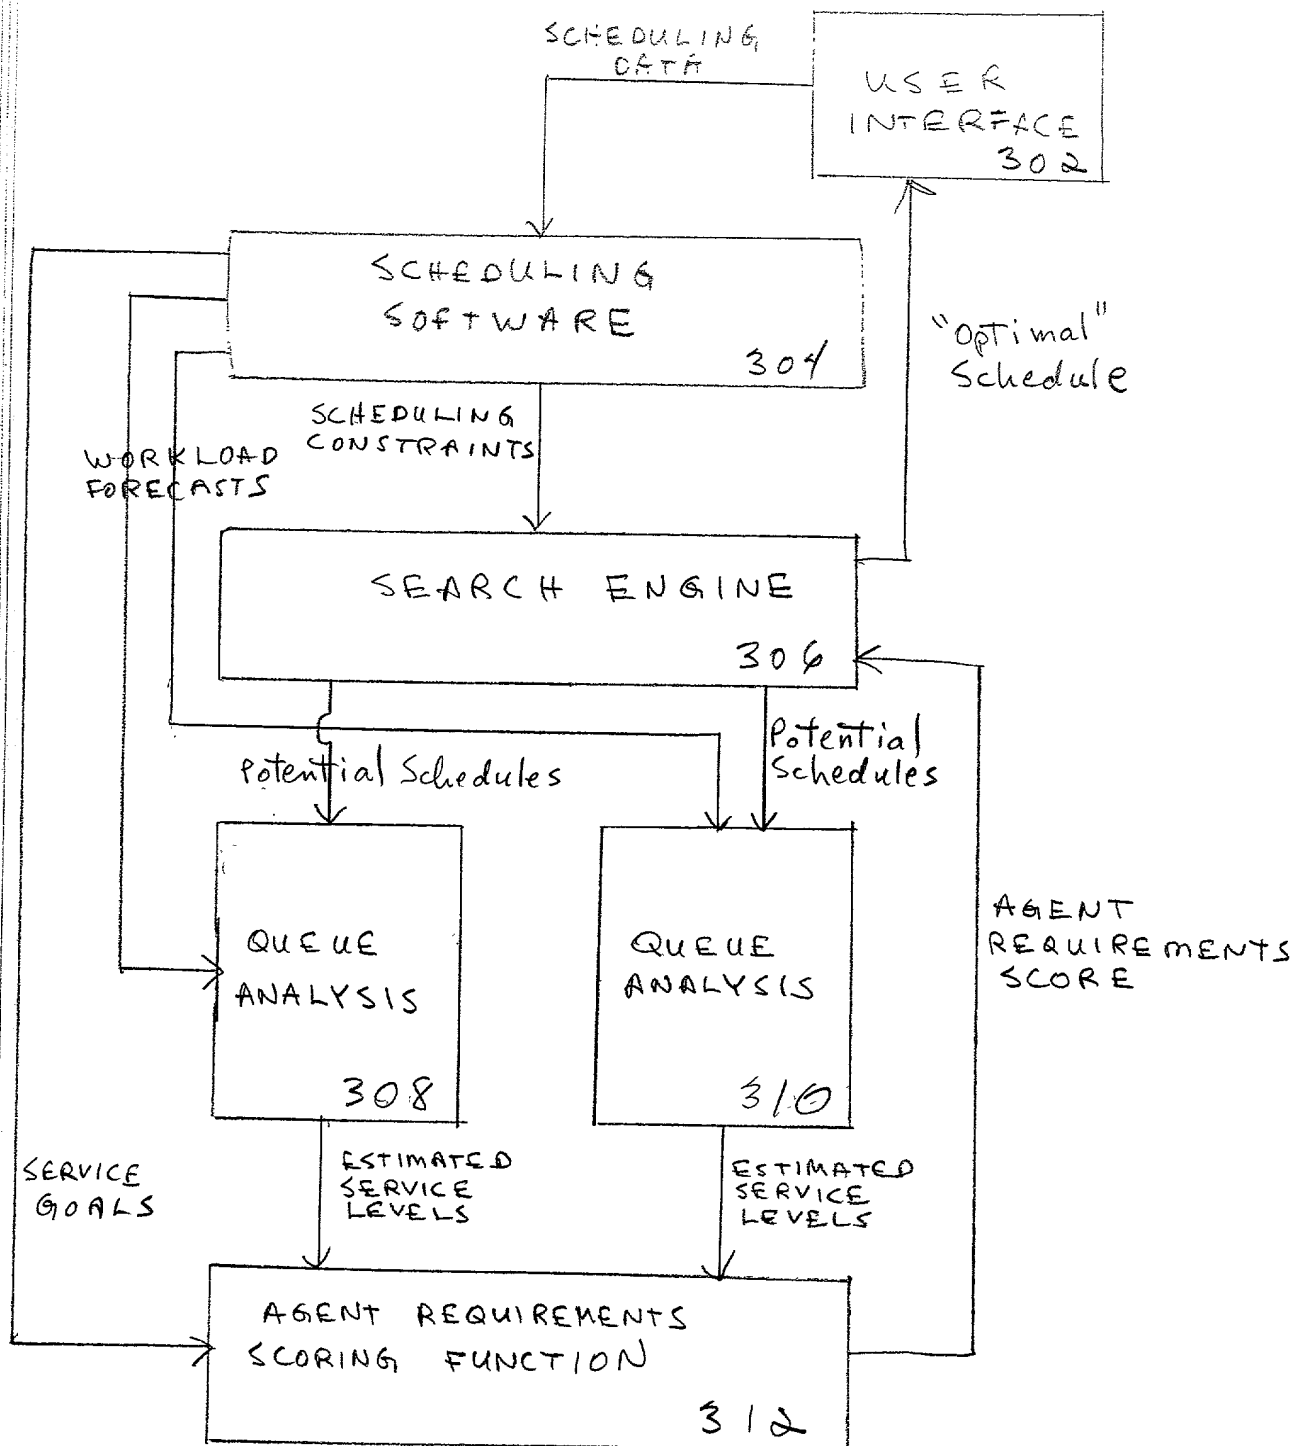 SCHEDULING
DATA
USER
INTERFACE
302
SCHEDULING
SOFTWARE
304
"Optimal"
Schedule
SCHEDULING
CONSTRAINTS
WORKLOAD
FORECASTS
SEARCH ENGINE
306
Potential
Schedules
Potential Schedules
QUEUE
ANALYSIS
308
QUEUE
ANALYSIS
310
AGENT
REQUIREMENTS
SCORE
SERVICE
GOALS
ESTIMATED
SERVICE
LEVELS
ESTIMATED
SERVICE
LEVELS
AGENT REQUIREMENTS
SCORING FUNCTION
312